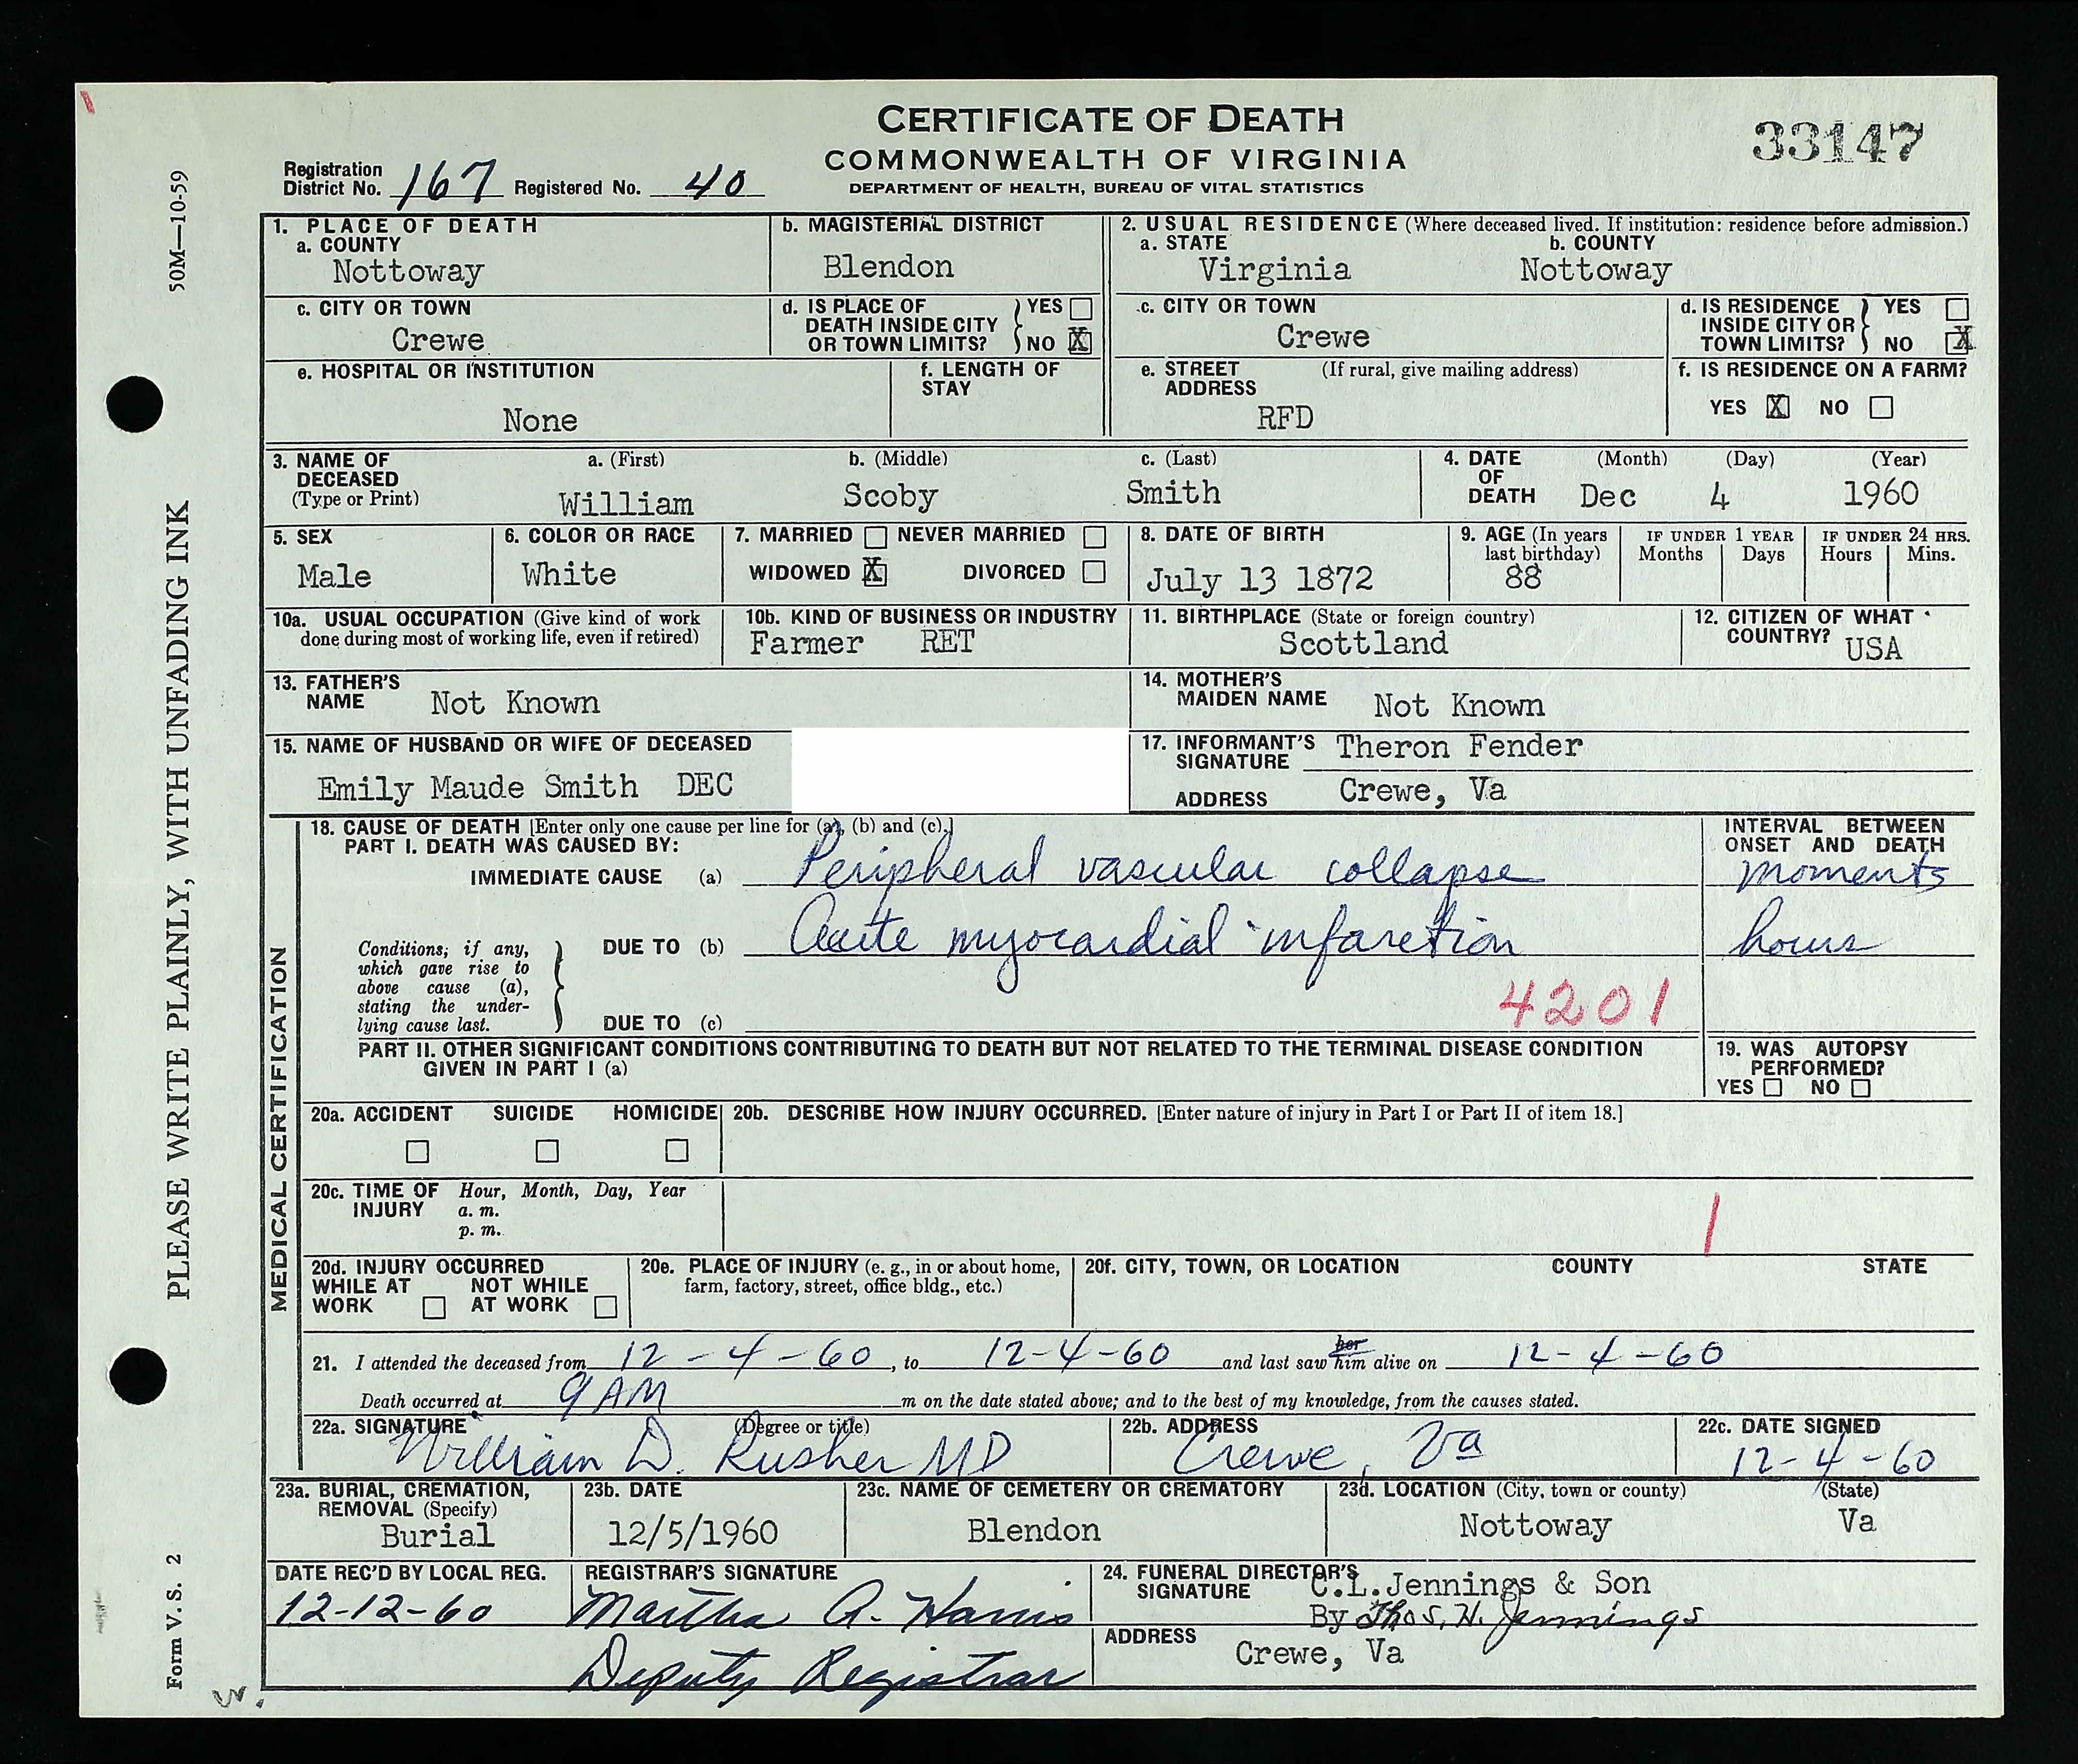 CERTIFICATE OF DEATH
COMMONWEALTH OF VIRGINIA
DEPARTMENT OF HEALTH, BUREAU OF VITAL STATISTICS
33147
Registration District No. 167 Registered No. 40
50M—10-59
PLEASE WRITE PLAINLY, WITH UNFADING INK
Form V. S. 2
1. PLACE OF DEATH
a. COUNTY
Nottoway
b. MAGISTERIAL DISTRICT
Blendon
2. USUAL RESIDENCE (Where deceased lived. If institution: residence before admission.)
a. STATE
Virginia
b. COUNTY
Nottoway
c. CITY OR TOWN
Crewe
d. IS PLACE OF DEATH INSIDE CITY OR TOWN LIMITS? YES NO X
c. CITY OR TOWN
Crewe
d. IS RESIDENCE INSIDE CITY OR TOWN LIMITS? YES NO X
e. HOSPITAL OR INSTITUTION
None
f. LENGTH OF STAY
e. STREET ADDRESS (If rural, give mailing address)
RFD
f. IS RESIDENCE ON A FARM?
YES X NO
3. NAME OF DECEASED (Type or Print)
a. (First) b. (Middle) c. (Last)
William Scoby Smith
4. DATE OF DEATH (Month) (Day) (Year)
Dec 4 1960
5. SEX
Male
6. COLOR OR RACE
White
7. MARRIED NEVER MARRIED
WIDOWED X DIVORCED
8. DATE OF BIRTH
July 13 1872
9. AGE (In years last birthday)
88
IF UNDER 1 YEAR
Months Days
IF UNDER 24 HRS.
Hours Mins.
10a. USUAL OCCUPATION (Give kind of work done during most of working life, even if retired)
10b. KIND OF BUSINESS OR INDUSTRY
Farmer RET
11. BIRTHPLACE (State or foreign country)
Scottland
12. CITIZEN OF WHAT COUNTRY? USA
13. FATHER'S NAME Not Known
14. MOTHER'S MAIDEN NAME Not Known
15. NAME OF HUSBAND OR WIFE OF DECEASED
Emily Maude Smith DEC
17. INFORMANT'S SIGNATURE Theron Fender
ADDRESS Crewe, Va
MEDICAL CERTIFICATION
18. CAUSE OF DEATH [Enter only one cause per line for (a), (b) and (c).]
PART I. DEATH WAS CAUSED BY:
INTERVAL BETWEEN ONSET AND DEATH
IMMEDIATE CAUSE (a) Peripheral vascular collapse moments
Conditions, if any, which gave rise to above cause (a), stating the underlying cause last.
DUE TO (b) Acute myocardial infarction hours
4201
DUE TO (c)
PART II. OTHER SIGNIFICANT CONDITIONS CONTRIBUTING TO DEATH BUT NOT RELATED TO THE TERMINAL DISEASE CONDITION GIVEN IN PART I (a)
19. WAS AUTOPSY PERFORMED?
YES NO
20a. ACCIDENT SUICIDE HOMICIDE
20b. DESCRIBE HOW INJURY OCCURRED. [Enter nature of injury in Part I or Part II of item 18.]
20c. TIME OF INJURY Hour, Month, Day, Year
a. m.
p. m.
1
20d. INJURY OCCURRED
WHILE AT WORK NOT WHILE AT WORK
20e. PLACE OF INJURY (e. g., in or about home, farm, factory, street, office bldg., etc.)
20f. CITY, TOWN, OR LOCATION COUNTY STATE
21. I attended the deceased from 12-4-60, to 12-4-60 and last saw her him alive on 12-4-60
Death occurred at 9 AM m on the date stated above; and to the best of my knowledge, from the causes stated.
22a. SIGNATURE (Degree or title)
William D. Rusher MD
22b. ADDRESS
Crewe, Va
22c. DATE SIGNED
12-4-60
23a. BURIAL, CREMATION, REMOVAL (Specify)
Burial
23b. DATE
12/5/1960
23c. NAME OF CEMETERY OR CREMATORY
Blendon
23d. LOCATION (City, town or county) (State)
Nottoway Va
DATE REC'D BY LOCAL REG.
12-12-60
REGISTRAR'S SIGNATURE
Martha A. Harris
Deputy Registrar
24. FUNERAL DIRECTOR'S SIGNATURE
C.L.Jennings & Son
By Thos. H. Jennings
ADDRESS
Crewe, Va
W.